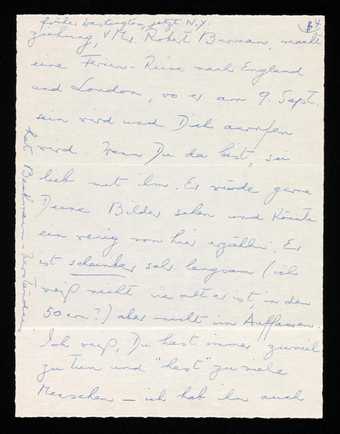 früher Washington, jetzt N.Y.
4
ziehung, Mr. Robert Bruman, macht
eine Ferien-Reise nach England
und London, wo er am 9. Sept.
sein wird und Dich anrufen
wird. Wenn Du da bist, sei
lieb mit ihm. Er würde gern
Deine Bilder sehen und könnte
ein wenig von hier erzählen. Er
ist scheinbar sehr langsam (ich
weiß nicht wie alt er ist, in den
50ern?) aber nicht im Auffassen.
Ich weiß, Du hast immer zuviel
zu tun und "hast" zuviele
Menschen — ich hab ihn auch